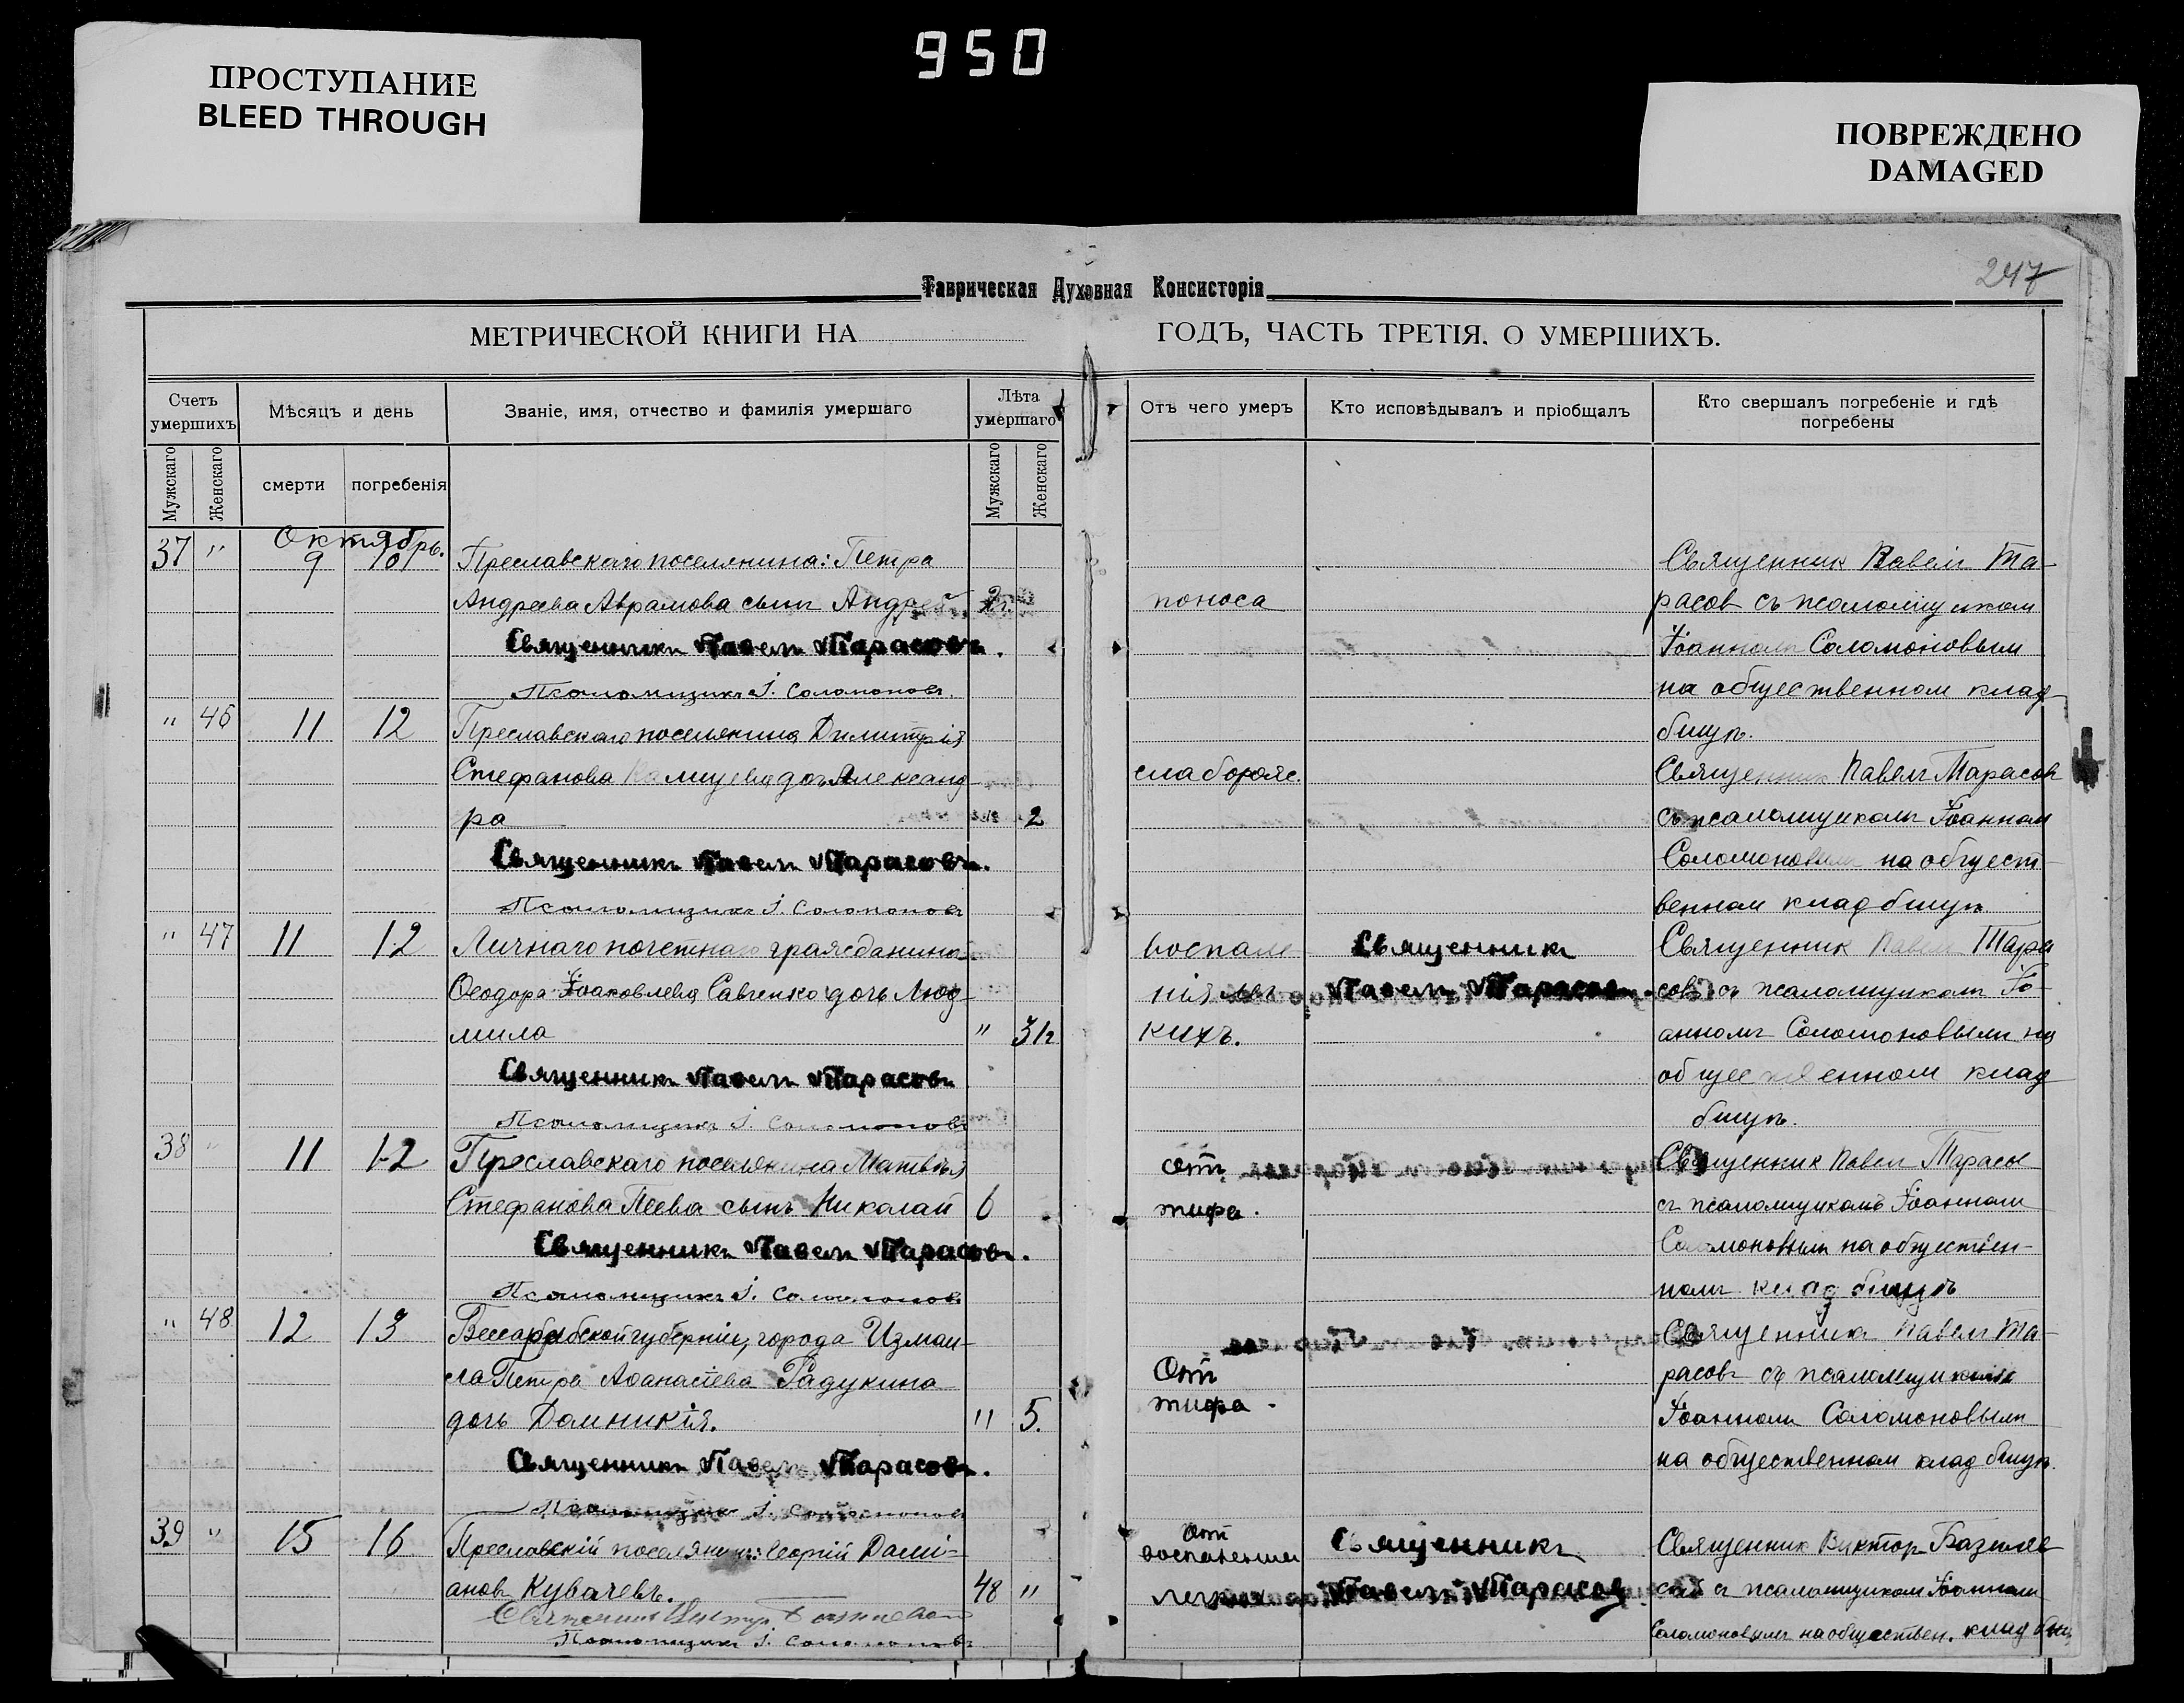 950
ПРОСТУПАНИЕ
BLEED THROUGH
ПОВРЕЖДЕНО
DAMAGED
247
Таврическая Духовная Консисторія
МЕТРИЧЕСКОЙ КНИГИ НА ГОДЪ, ЧАСТЬ ТРЕТІЯ. О УМЕРШИХЪ.
Счетъ умершихъ
Мѣсяцъ и день
Званіе, имя, отчество и фамилія умершаго
Лѣта умершаго
Отъ чего умеръ
Кто исповѣдывалъ и пріобщалъ
Кто свершалъ погребеніе и гдѣ погребены
Мужскаго
Женскаго
смерти
погребенія
Мужскаго
Женскаго
Октябрь.
37 " 9 10 Преславскаго поселянина: Петра
Андреева Аврамова сынъ Андрей 2г.
Священникъ Павелъ Тарасовъ.
Псаломщикъ І. Соломоновъ.
поноса
Священник Павелъ Та-
расов съ псаломщиком
Іоанномъ Соломоновым
на общественном клад-
бищѣ.
" 46 11 12 Преславскаго поселянина Димитрія
Стефанова дочь Александ
ра 2
Священникъ Павелъ Тарасовъ.
Псаломщикъ І. Соломоновъ
Священник Павелъ Тарасовъ
съ псаломщикомъ Іоанном
Соломоновым на общест-
венном кладбищѣ
" 47 11 12 Личнаго почетнаго гражданина
Ѳеодора Іоаковлева Савченко дочь Люд-
мила " 3½
Священникъ Павелъ Тарасовъ
Псаломщикъ І. Соломоновъ
воспале
нія лег
кихъ.
Священникъ
Павелъ Тарасовъ.
Священник Павелъ Тара
совъ съ псаломщикомъ Іо-
анномъ Соломоновым на
общественном клад
бищѣ.
38 " 11 12 Преславскаго поселянина Матвѣя
Стефанова Пеева сынъ Николай 6
Священникъ Павелъ Тарасовъ.
Псаломщикъ І. Соломоновъ
отъ
тифа.
Священник Павел Тарасов
съ псаломщикомъ Іоанном
Соломоновым на обществен-
номъ кладбищѣ
" 48 12 13 Бессарабской губерніи, города Измаи-
ла Петра Аѳанасіева Радукина
дочь Домникія. " 5.
Священникъ Павелъ Тарасовъ.
Псаломщикъ І. Соломоновъ
Отъ
тифа.
Священникъ Павелъ Та-
расовъ съ псаломщикомъ
Іоанномъ Соломоновымъ
на общественном кладбищѣ.
39 " 15 16 Преславскій поселянинъ: Георгій Дамі-
ановъ Кубачевъ. 48 "
Священникъ Викторъ
Псаломщикъ І. Соломоновъ
отъ
воспаленія
легких
Священникъ
Павелъ Тарасов
Священник Виктор
съ псаломщиком Іоанном
Соломоновымъ на обществен. кладбищ